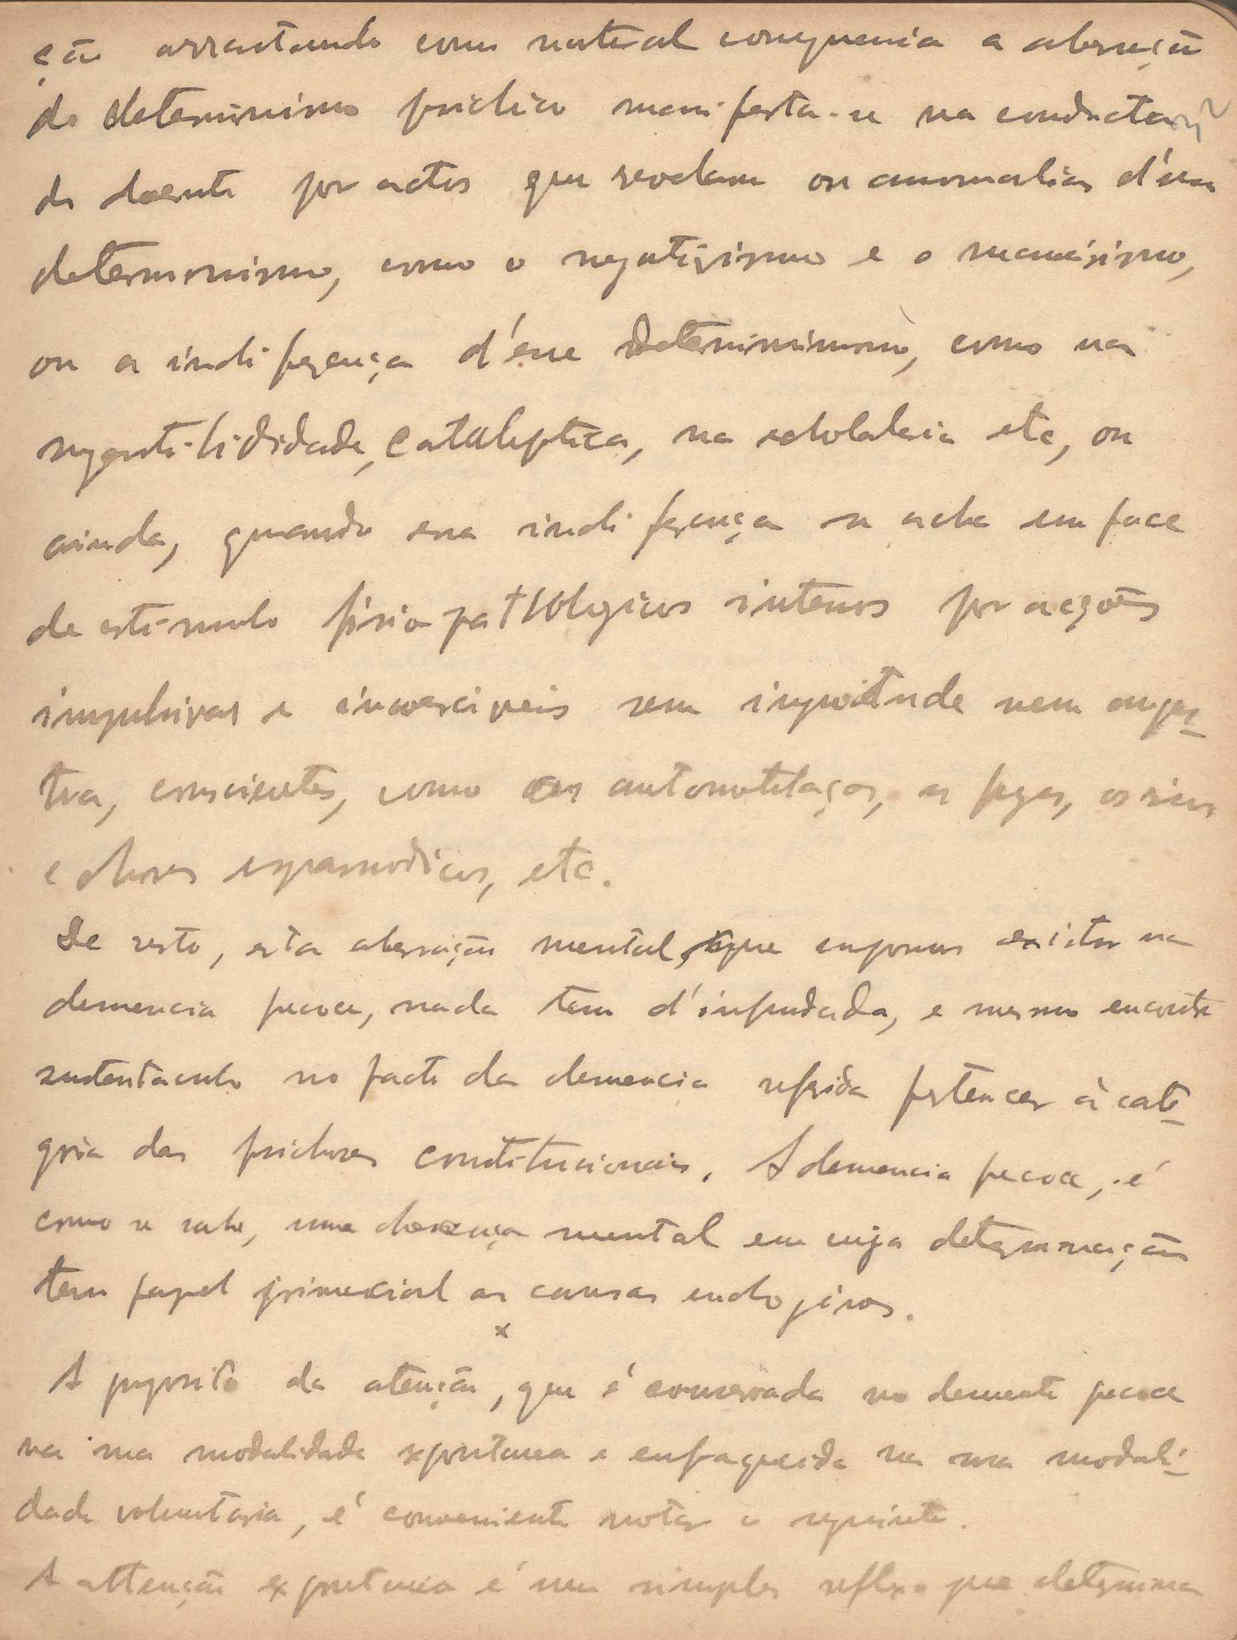 ção arrastando como natural conquencia a aberração
do determinismo psichico manifesta-se na conducta
do doente por actos que revelam ou anomalias d'esse
determinismo, como o negativismo e o maneirismo,
ou a indiferença d'esse determinismo, como na
sugestibilidade cataleptica, na echolalia etc, ou
ainda, quando essa indiferença se acha em face
de estimulo fisiopatologicos internos por acções
impulsivas e incoerciveis sem inquietude nem angus-
tia, conscientes, como as automutilações, as fugas, os risos
e choros espasmodicos, etc.
De resto, esta aberração mental, que supomos existir na
demencia precoce, nada tem d'infundada, e mesmo encontra
sustentaculo no facto da demencia referida pertencer á cate-
goria das psichoses constitucionais. A demencia precoce, é
como se sabe, uma doença mental em cuja determinação
tem papel primacial as causas endogenas.
x
A proposito da atenção, que é conservada no demente precoce
na sua modalidade espontanea e enfraquecida na sua modali-
dade voluntaria, é conveniente notar o seguinte.
A attenção espontanea é um simples reflexo que determina